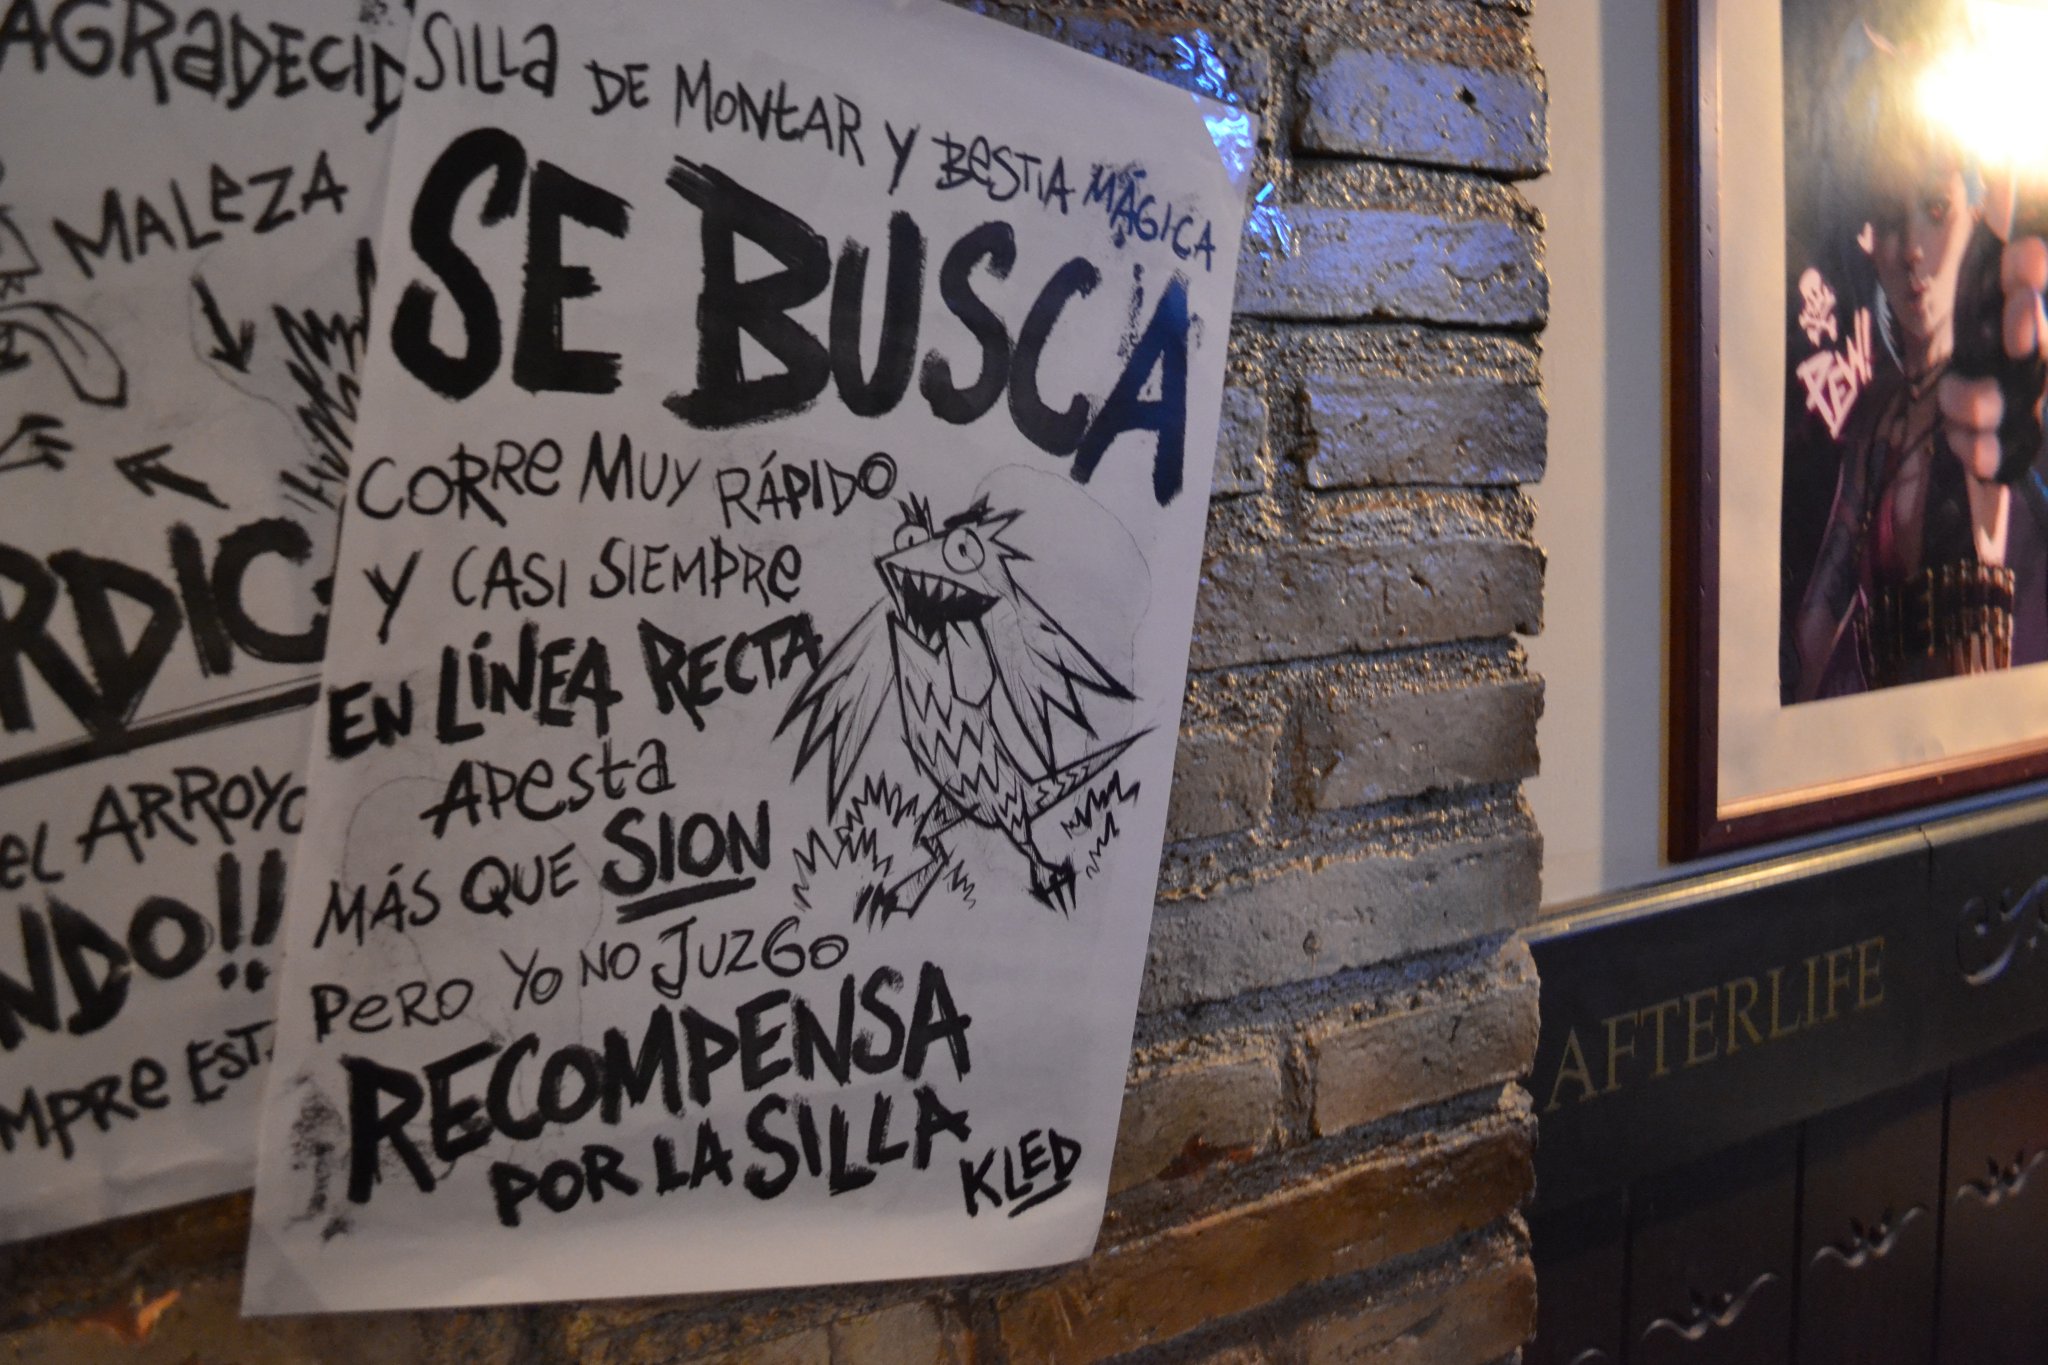 SILLA DE MONTAR Y BESTIA MÁGICA
SE BUSCA
CORRE MUY RÁPIDO
Y CASI SIEMPRE
EN LÍNEA RECTA
APESTA
MÁS QUE SION
PERO YO NO JUZGO
RECOMPENSA
POR LA SILLA
KLED
AGRADECID
MALEZA
RDIC
EL ARROYO
NDO!!
MPRE EST
PEW!
AFTERLIFE